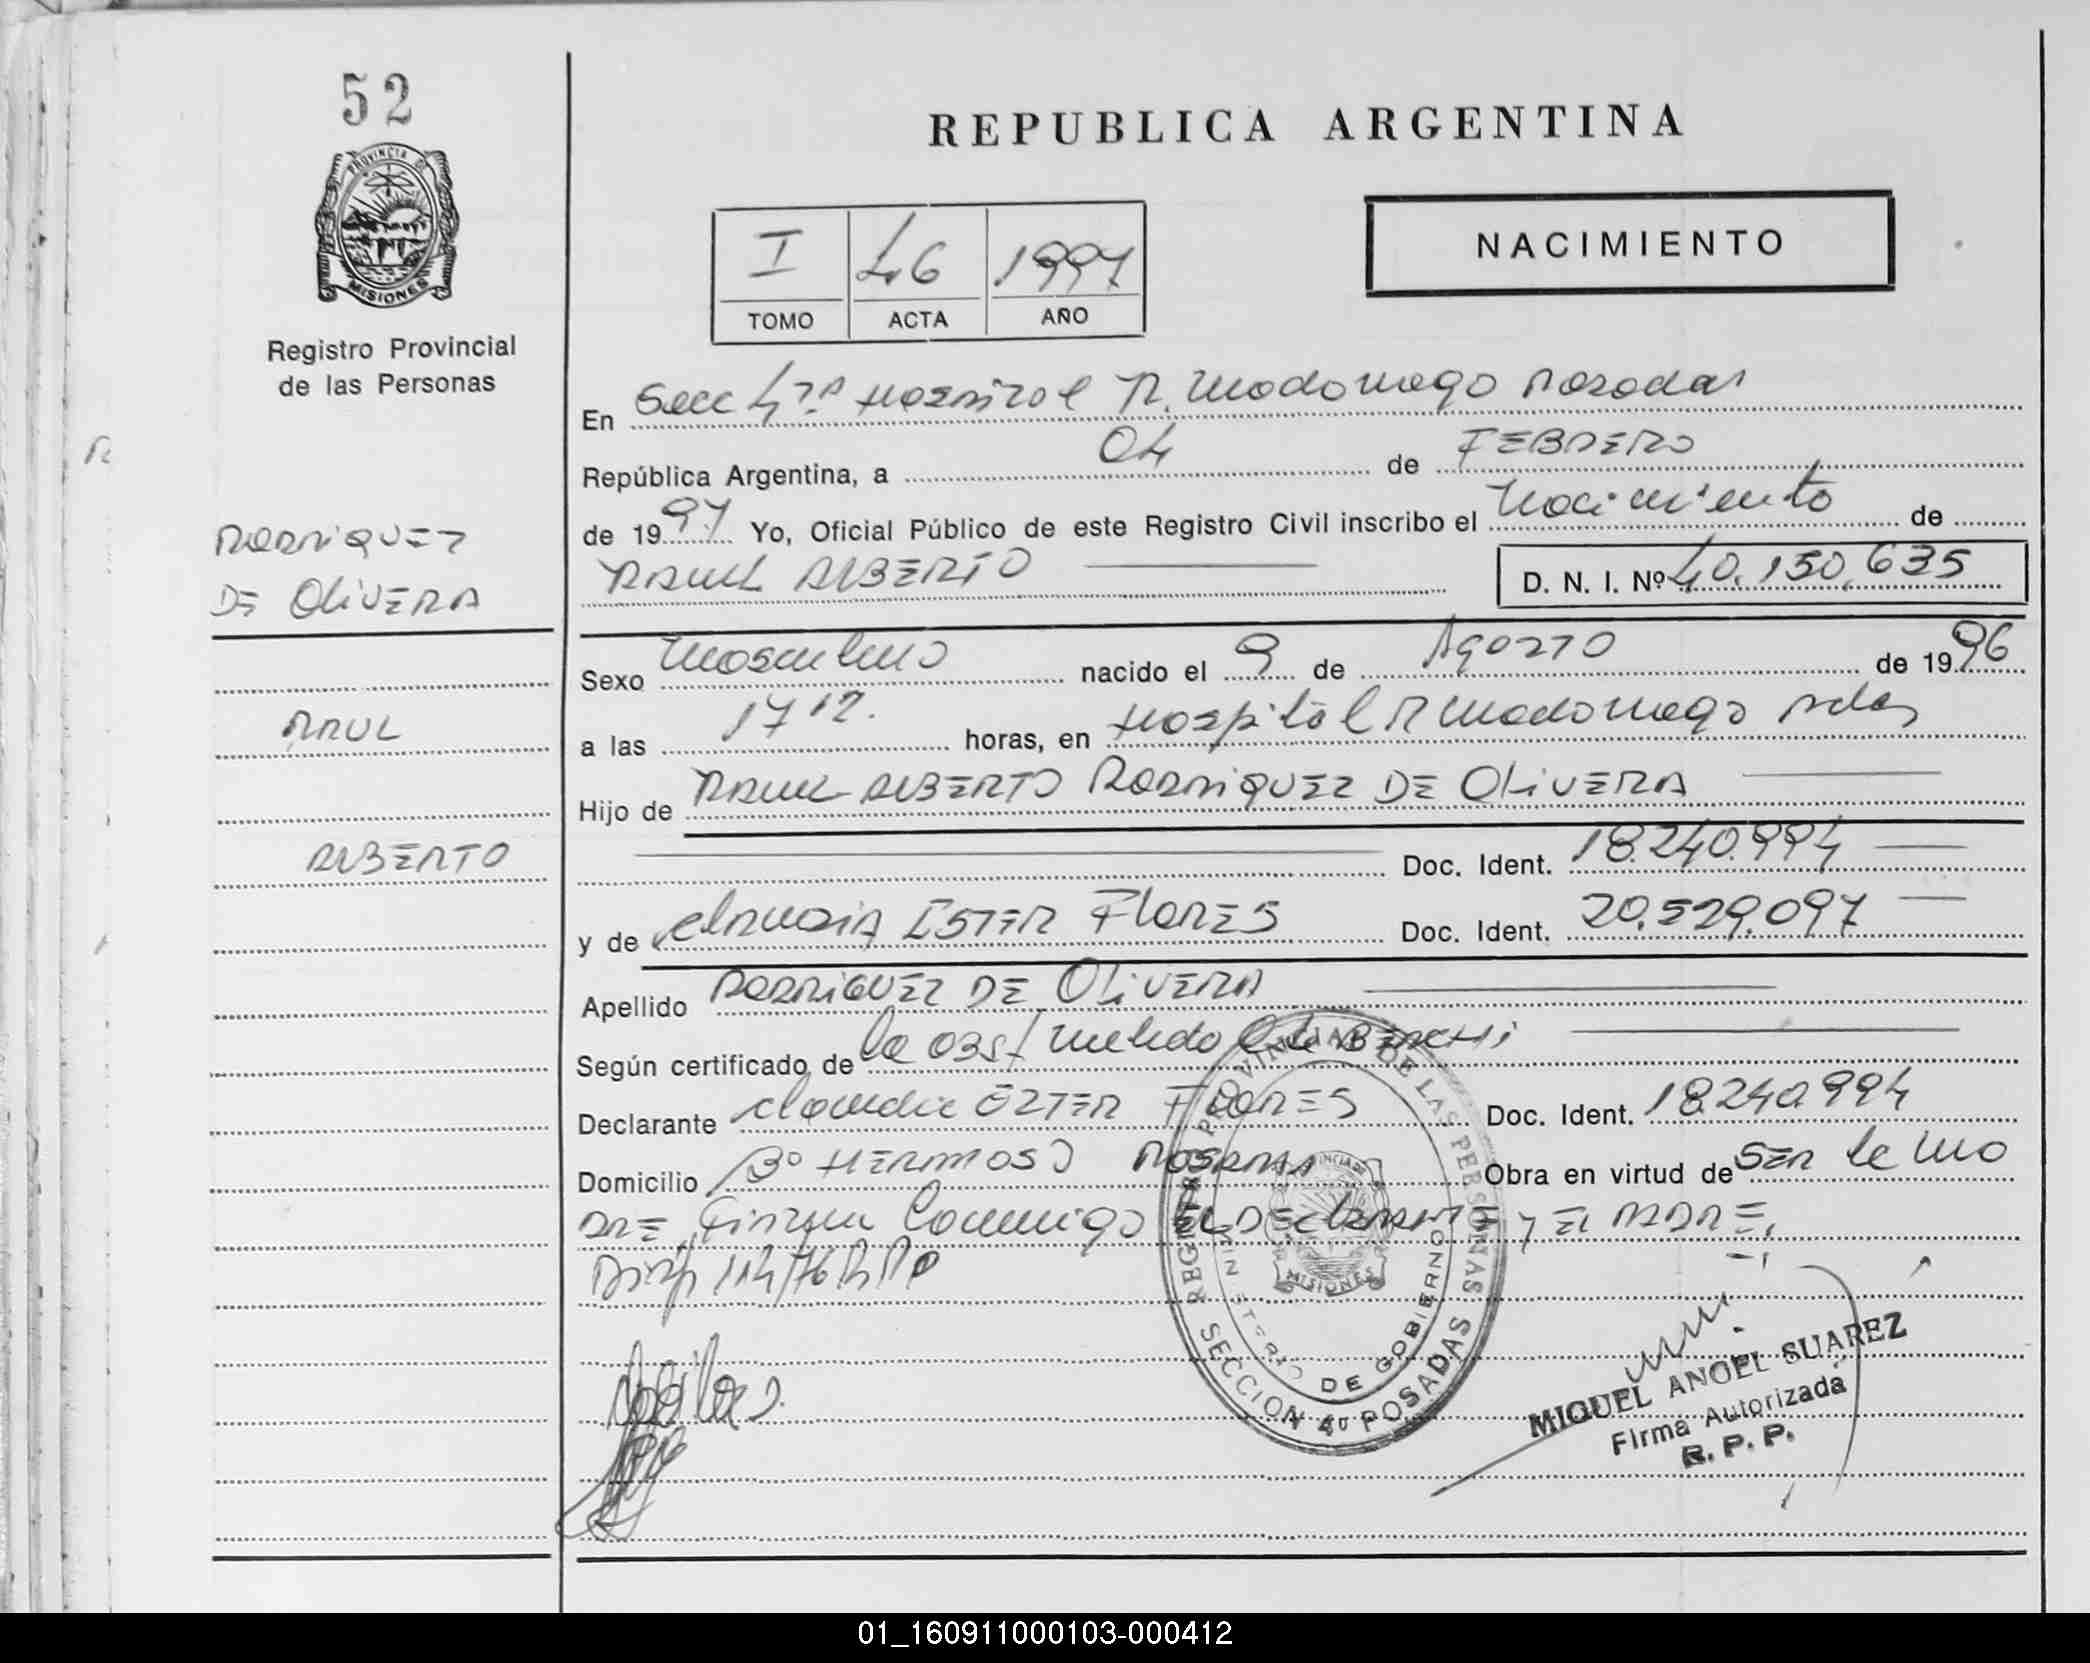 52
PROVINCIA DE
MISIONES
Registro Provincial
de las Personas
REPUBLICA ARGENTINA
NACIMIENTO
I 46 1997
TOMO ACTA AÑO
En Secc 4ta Hospital R. Madariaga Posadas
República Argentina, a 04 de FEBRERO
de 1997 Yo, Oficial Público de este Registro Civil inscribo el Nacimiento de
RAUL ALBERTO D. N. I. Nº 40.150.635
RODRIQUEZ
DE OLIVERA
RAUL
ALBERTO
Sexo Masculino nacido el 9 de Agosto de 1996
a las 17 12. horas, en Hospital R Madariaga Pdas
Hijo de RAUL ALBERTO RODRIQUEZ DE OLIVERA
Doc. Ident. 18.240.994
y de Claudia ESTER FLORES Doc. Ident. 20.529.097
Apellido RODRIGUEZ DE OLIVERA
Según certificado de la OBST
Declarante Claudia ESTER FLORES Doc. Ident. 18240994
Domicilio Bº HERMOSO POSADAS Obra en virtud de SER le MA
DRE, Firman Conmigo EL DECLARANTE y EL PADRE,
Disp 114/76 RPP
REGISTRO PROVINCIAL DE LAS PERSONAS
MINISTERIO DE GOBIERNO
MISIONES
SECCION 4º POSADAS
MIGUEL ANGEL SUAREZ
Firma Autorizada
R. P. P.
01_160911000103-000412